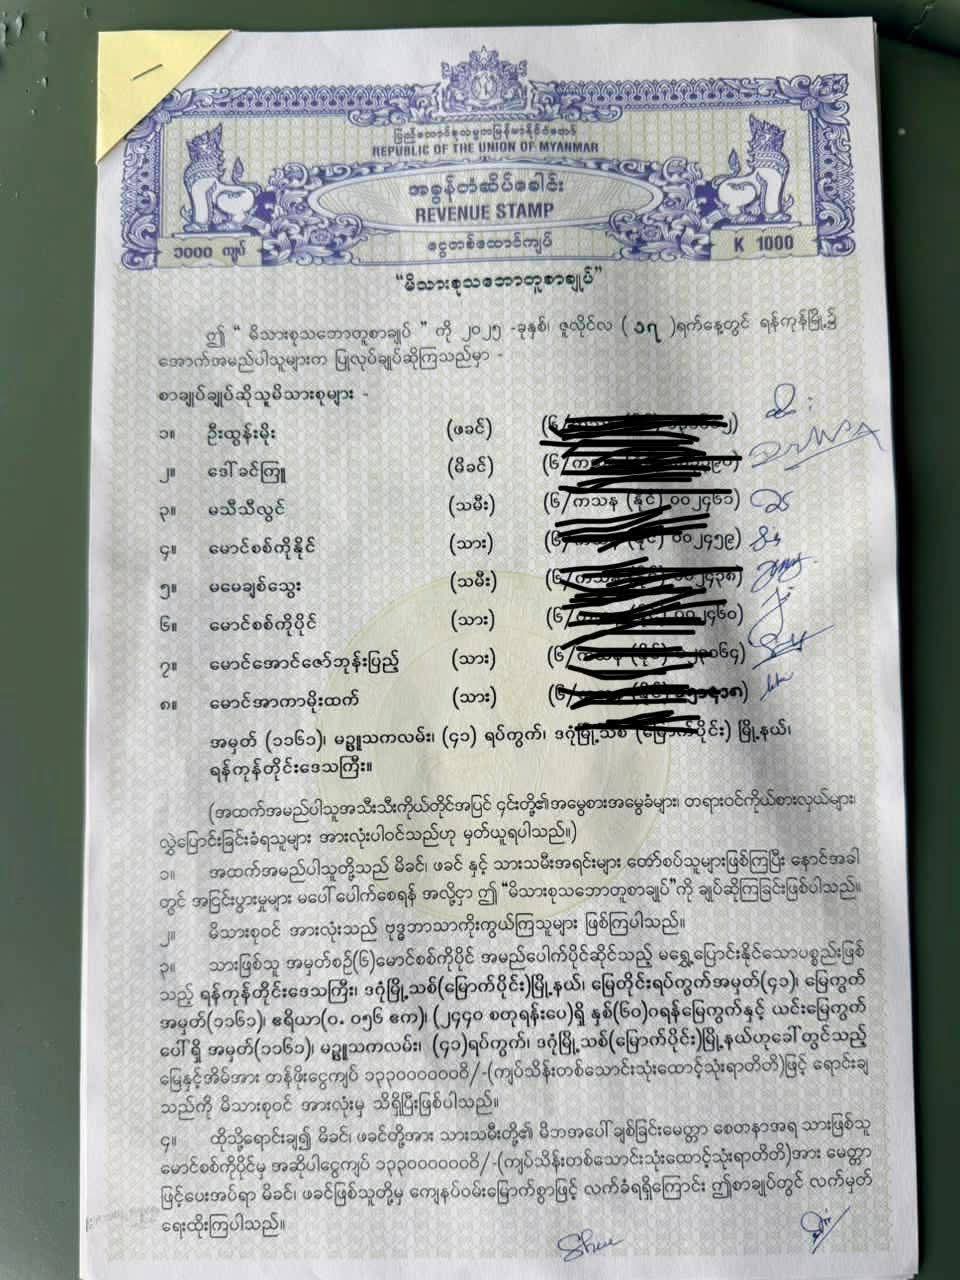 ပြည်ထောင်စုသမ္မတမြန်မာနိုင်ငံတော်
REPUBLIC OF THE UNION OF MYANMAR
အခွန်တံဆိပ်ခေါင်း
REVENUE STAMP
၁၀၀၀ ကျပ် ငွေတစ်ထောင်ကျပ် K 1000
“မိသားစုသဘောတူစာချုပ်”
ဤ “ မိသားစုသဘောတူစာချုပ် ” ကို ၂၀၂၅ -ခုနှစ်၊ ဇူလိုင်လ ( ၁၇ )ရက်နေ့တွင် ရန်ကုန်မြို့၌
အောက်အမည်ပါသူများက ပြုလုပ်ချုပ်ဆိုကြသည်မှာ -
စာချုပ်ချုပ်ဆိုသူမိသားစုများ -
၁။ ဦးထွန်းမိုး (ဖခင်) (၆/
၂။ ဒေါ်ခင်ကြူ (မိခင်) (၆/
၃။ မသီသီလွင် (သမီး) (၆/ကသန (နိုင်) ၀၀၂၄၆၁)
၄။ မောင်စစ်ကိုနိုင် (သား) (၆/ ၀၀၂၄၅၉)
၅။ မမေချစ်သွေး (သမီး) (၆/ ၀၀၂၄၃၈)
၆။ မောင်စစ်ကိုပိုင် (သား) (၆/ ၀၀၂၄၆၀)
၇။ မောင်အောင်ဇော်ဘုန်းပြည့် (သား) (၆/
၈။ မောင်အာကာမိုးထက် (သား) (၆/
အမှတ် (၁၁၆၁)၊ မဥ္ဇူသကလမ်း၊ (၄၁) ရပ်ကွက်၊ ဒဂုံမြို့သစ် (မြောက်ပိုင်း) မြို့နယ်၊
ရန်ကုန်တိုင်းဒေသကြီး။
(အထက်အမည်ပါသူအသီးသီးကိုယ်တိုင်အပြင် ၎င်းတို့၏အမွေစားအမွေခံများ၊ တရားဝင်ကိုယ်စားလှယ်များ၊
လွှဲပြောင်းခြင်းခံရသူများ အားလုံးပါဝင်သည်ဟု မှတ်ယူရပါသည်။)
၁။ အထက်အမည်ပါသူတို့သည် မိခင်၊ ဖခင် နှင့် သားသမီးအရင်းများ တော်စပ်သူများဖြစ်ကြပြီး နောင်အခါ
တွင် အငြင်းပွားမှုများ မပေါ်ပေါက်စေရန် အလို့ငှာ ဤ “မိသားစုသဘောတူစာချုပ်”ကို ချုပ်ဆိုကြခြင်းဖြစ်ပါသည်။
၂။ မိသားစုဝင် အားလုံးသည် ဗုဒ္ဓဘာသာကိုးကွယ်ကြသူများ ဖြစ်ကြပါသည်။
၃။ သားဖြစ်သူ အမှတ်စဉ်(၆)မောင်စစ်ကိုပိုင် အမည်ပေါက်ပိုင်ဆိုင်သည့် မရွှေ့ပြောင်းနိုင်သောပစ္စည်းဖြစ်
သည့် ရန်ကုန်တိုင်းဒေသကြီး၊ ဒဂုံမြို့သစ်(မြောက်ပိုင်း)မြို့နယ်၊ မြေတိုင်းရပ်ကွက်အမှတ်(၄၁)၊ မြေကွက်
အမှတ်(၁၁၆၁)၊ ဧရိယာ(၀.၀၅၆ ဧက)၊ (၂၄၄၀ စတုရန်းပေ)ရှိ နှစ်(၆၀)ဂရန်မြေကွက်နှင့် ယင်းမြေကွက်
ပေါ်ရှိ အမှတ်(၁၁၆၁)၊ မဥ္ဇူသကလမ်း၊ (၄၁)ရပ်ကွက်၊ ဒဂုံမြို့သစ်(မြောက်ပိုင်း)မြို့နယ်ဟုခေါ်တွင်သည့်
မြေနှင့်အိမ်အား တန်ဖိုးငွေကျပ် ၁၃၃၀၀၀၀၀၀၀ိ/-(ကျပ်သိန်းတစ်သောင်းသုံးထောင့်သုံးရာတိတိ)ဖြင့် ရောင်းချ
သည်ကို မိသားစုဝင် အားလုံးမှ သိရှိပြီးဖြစ်ပါသည်။
၄။ ထိုသို့ရောင်းချ၍ မိခင်၊ ဖခင်တို့အား သားသမီးတို့၏ မိဘအပေါ်ချစ်ခြင်းမေတ္တာ စေတနာအရ သားဖြစ်သူ
မောင်စစ်ကိုပိုင်မှ အဆိုပါငွေကျပ် ၁၃၃၀၀၀၀၀၀၀ိ/-(ကျပ်သိန်းတစ်သောင်းသုံးထောင့်သုံးရာတိတိ)အား မေတ္တာ
ဖြင့်ပေးအပ်ရာ မိခင်၊ ဖခင်ဖြစ်သူတို့မှ ကျေနပ်ဝမ်းမြောက်စွာဖြင့် လက်ခံရရှိကြောင်း ဤစာချုပ်တွင် လက်မှတ်
ရေးထိုးကြပါသည်။